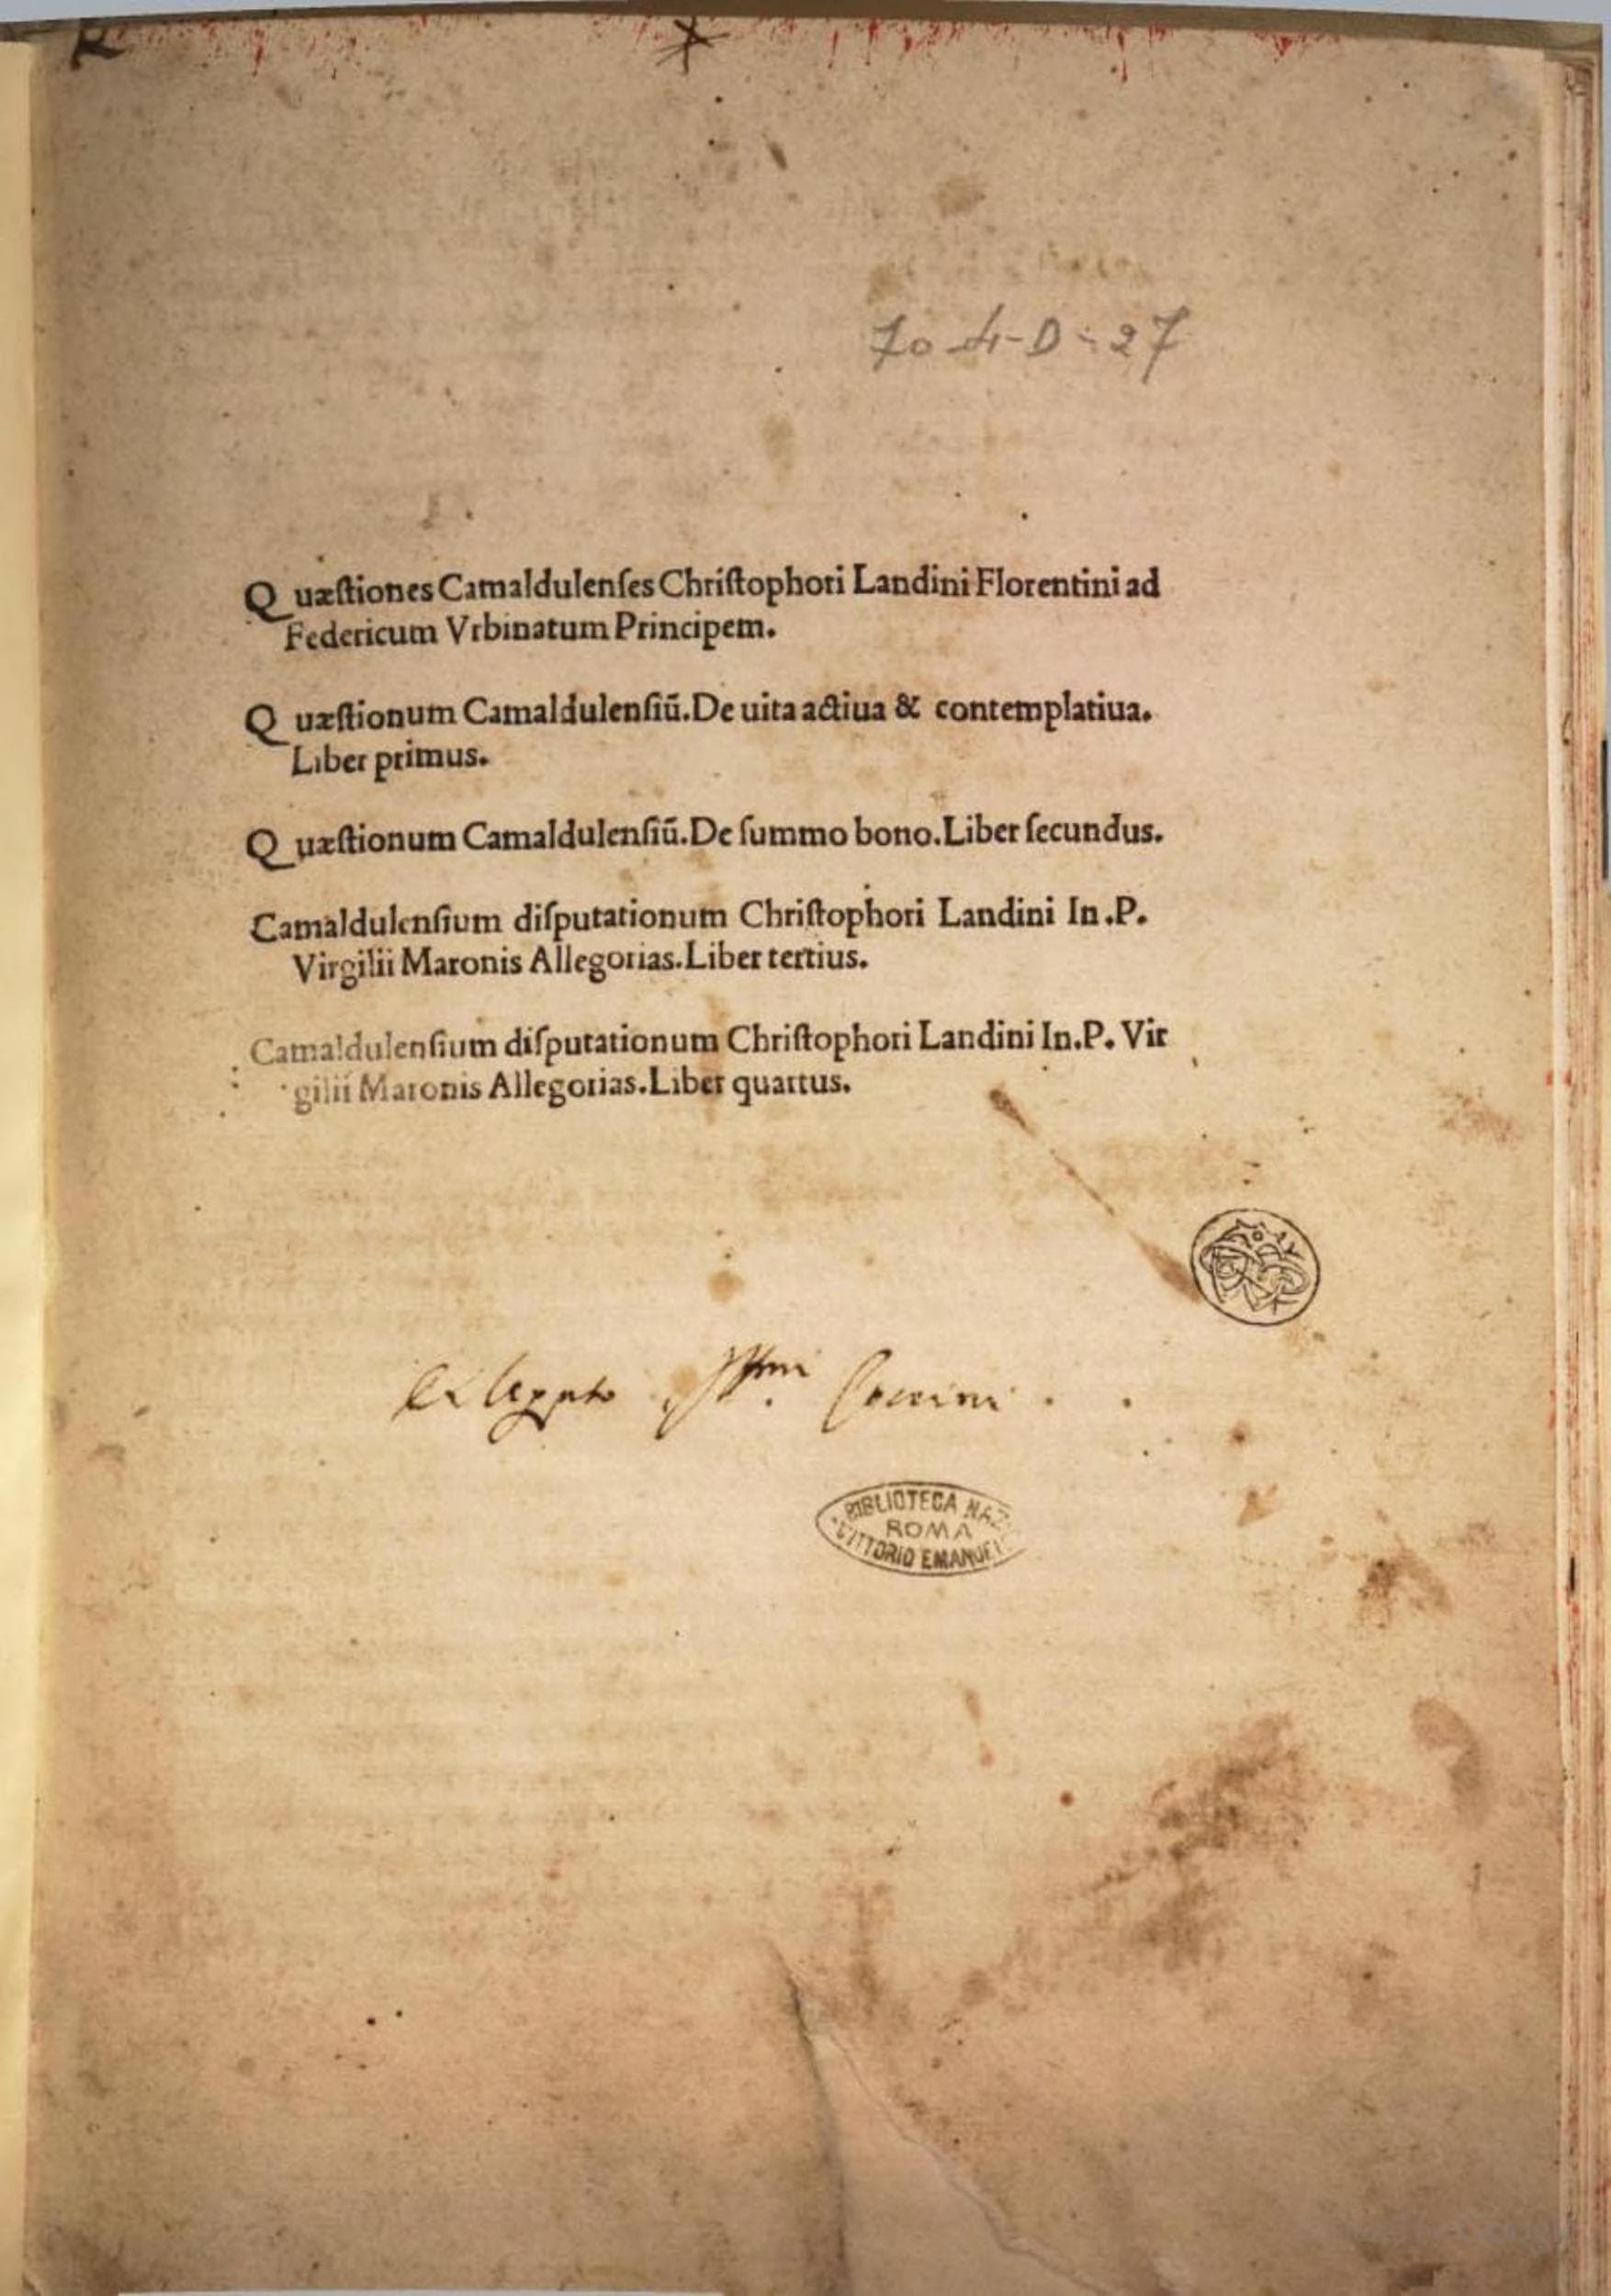 70-4-D-27
Quæſtiones Camaldulenſes Chriſtophori Landini Florentini ad
Federicum Vrbinatum Principem.
Quæſtionum Camaldulenſiū. De uita actiua & contemplatiua.
Liber primus.
Quæſtionum Camaldulenſiū. De ſummo bono. Liber ſecundus.
Camaldulenſium diſputationum Chriſtophori Landini In .P.
Virgilii Maronis Allegorias. Liber tertius.
Camaldulenſium diſputationum Chriſtophori Landini In .P. Vir
gilii Maronis Allegorias. Liber quartus.
Ex legato
BIBLIOTECA NAZ
ROMA
VITTORIO EMANUEL